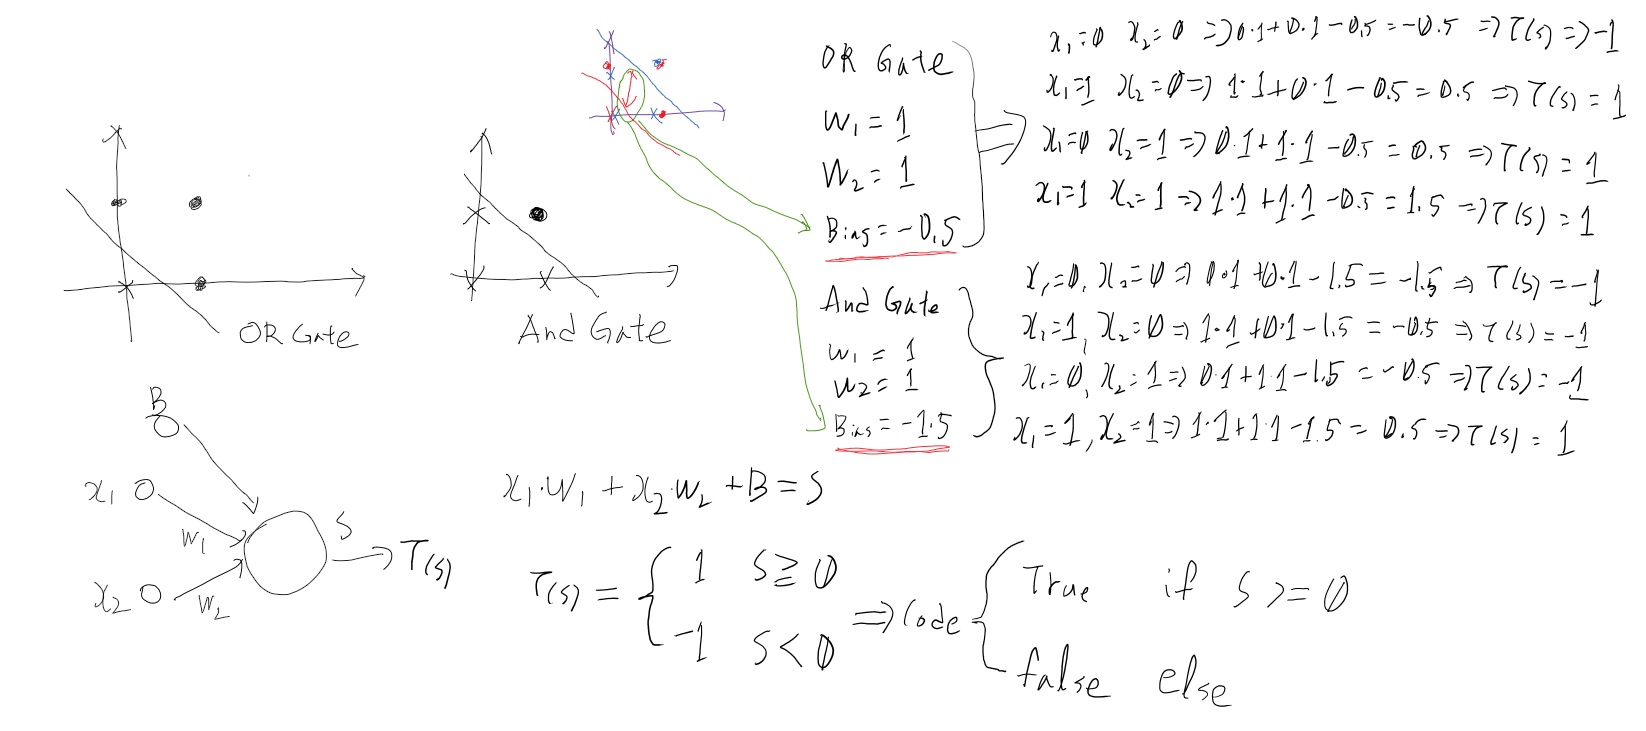 OR Gate
And Gate
B
x₁
w₁
x₂
w₂
S
T(s)
OR Gate
W₁ = 1
W₂ = 1
Bias = -0.5
x₁=0 x₂=0 => 0·1+0·1-0.5=-0.5 => T(s) => -1
x₁=1 x₂=0 => 1·1+0·1-0.5=0.5 => T(s)=1
x₁=0 x₂=1 => 0·1+1·1-0.5=0.5 => T(s)=1
x₁=1 x₂=1 => 1·1+1·1-0.5=1.5 => T(s)=1
And Gate
w₁ = 1
w₂ = 1
Bias = -1.5
x₁=0, x₂=0 => 0·1+0·1-1.5=-1.5 => T(s)=-1
x₁=1, x₂=0 => 1·1+0·1-1.5=-0.5 => T(s)=-1
x₁=0, x₂=1 => 0·1+1·1-1.5=-0.5 => T(s)=-1
x₁=1, x₂=1 => 1·1+1·1-1.5=0.5 => T(s)=1
x₁·W₁ + x₂·W₂ + B = S
T(s) = { 1 S≧0
-1 S<0
=> Code { True if S >= 0
false else